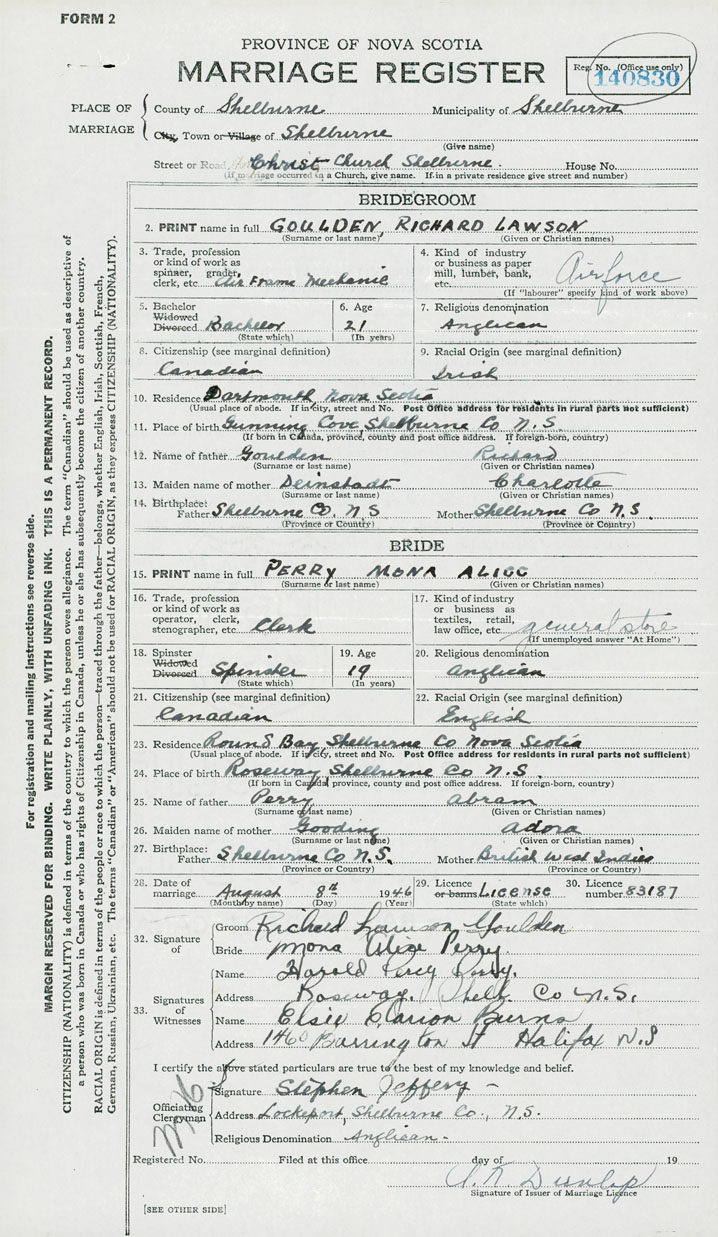 FORM 2
PROVINCE OF NOVA SCOTIA
MARRIAGE REGISTER
Reg. No. (Office use only)
140830
PLACE OF MARRIAGE
County of Shelburne Municipality of Shelburne
City, Town or Village of Shelburne
(Give name)
Street or Road Christ Church Shelburne. House No.
(If marriage occurred in a Church, give name. If in a private residence give street and number)
BRIDEGROOM
2. PRINT name in full GOULDEN, RICHARD LAWSON
(Surname or last name) (Given or Christian names)
3. Trade, profession or kind of work as spinner, grader, clerk, etc. Air Frame Mechanic
4. Kind of industry or business as paper mill, lumber, bank, etc. Airforce
(If "labourer" specify kind of work above)
5. Bachelor Widowed Divorced Bachelor
(State which)
6. Age 21
(In years)
7. Religious denomination Anglican
8. Citizenship (see marginal definition) Canadian
9. Racial Origin (see marginal definition) Irish
10. Residence Dartmouth, Nova Scotia
(Usual place of abode. If in city, street and No. Post Office address for residents in rural parts not sufficient)
11. Place of birth Gunning Cove, Shelburne Co N.S.
(If born in Canada, province, county and post office address. If foreign-born, country)
12. Name of father Goulden Richard
(Surname or last name) (Given or Christian names)
13. Maiden name of mother Deinstadt Charlotte
(Surname or last name) (Given or Christian names)
14. Birthplace: Father Shelburne Co. N.S Mother Shelburne Co N.S.
(Province or Country) (Province or Country)
BRIDE
15. PRINT name in full PERRY MONA ALICE
(Surname or last name) (Given or Christian names)
16. Trade, profession or kind of work as operator, clerk, stenographer, etc. Clerk
17. Kind of industry or business as textiles, retail, law office, etc. general store
(If unemployed answer "At Home")
18. Spinster Widowed Divorced Spinster
(State which)
19. Age 19
(In years)
20. Religious denomination Anglican
21. Citizenship (see marginal definition) Canadian
22. Racial Origin (see marginal definition) English
23. Residence Round Bay, Shelburne Co Nova Scotia
(Usual place of abode. If in city, street and No. Post Office address for residents in rural parts not sufficient)
24. Place of birth Roseway Shelburne Co N.S.
(If born in Canada, province, county and post office address. If foreign-born, country)
25. Name of father Perry Abram
(Surname or last name) (Given or Christian names)
26. Maiden name of mother Gooding Adora
(Surname or last name) (Given or Christian names)
27. Birthplace: Father Shelburne Co N.S. Mother British West Indies
(Province or Country) (Province or Country)
28. Date of marriage August 8th 1946
(Month by name) (Day) (Year)
29. Licence or banns License
(State which)
30. Licence number 83187
32. Signature of
Groom Richard Lawson Goulden
Bride Mona Alice Perry.
33. Signatures of Witnesses
Name Harold Percy Perry.
Address Roseway. Shelb. Co N.S.
Name Elsie Burns
Address 1460 Barrington St Halifax N.S
I certify the above stated particulars are true to the best of my knowledge and belief.
Officiating Clergyman
Signature Stephen Jeffery
Address Lockeport, Shelburne Co., N.S.
Religious Denomination Anglican.
Registered No. Filed at this office day of 19
Signature of Issuer of Marriage Licence
A. R. Dunlap
[SEE OTHER SIDE]
For registration and mailing instructions see reverse side.
MARGIN RESERVED FOR BINDING. WRITE PLAINLY, WITH UNFADING INK. THIS IS A PERMANENT RECORD.
CITIZENSHIP (NATIONALITY) is defined in terms of the country to which the person owes allegiance. The term "Canadian" should be used as descriptive of
a person who was born in Canada or who has rights of Citizenship in Canada, unless he or she has subsequently become the citizen of another country.
RACIAL ORIGIN is defined in terms of the people or race to which the person—traced through the father—belongs, whether English, Irish, Scottish, French,
German, Russian, Ukrainian, etc. The terms "Canadian" or "American" should not be used for RACIAL ORIGIN, as they express CITIZENSHIP (NATIONALITY).